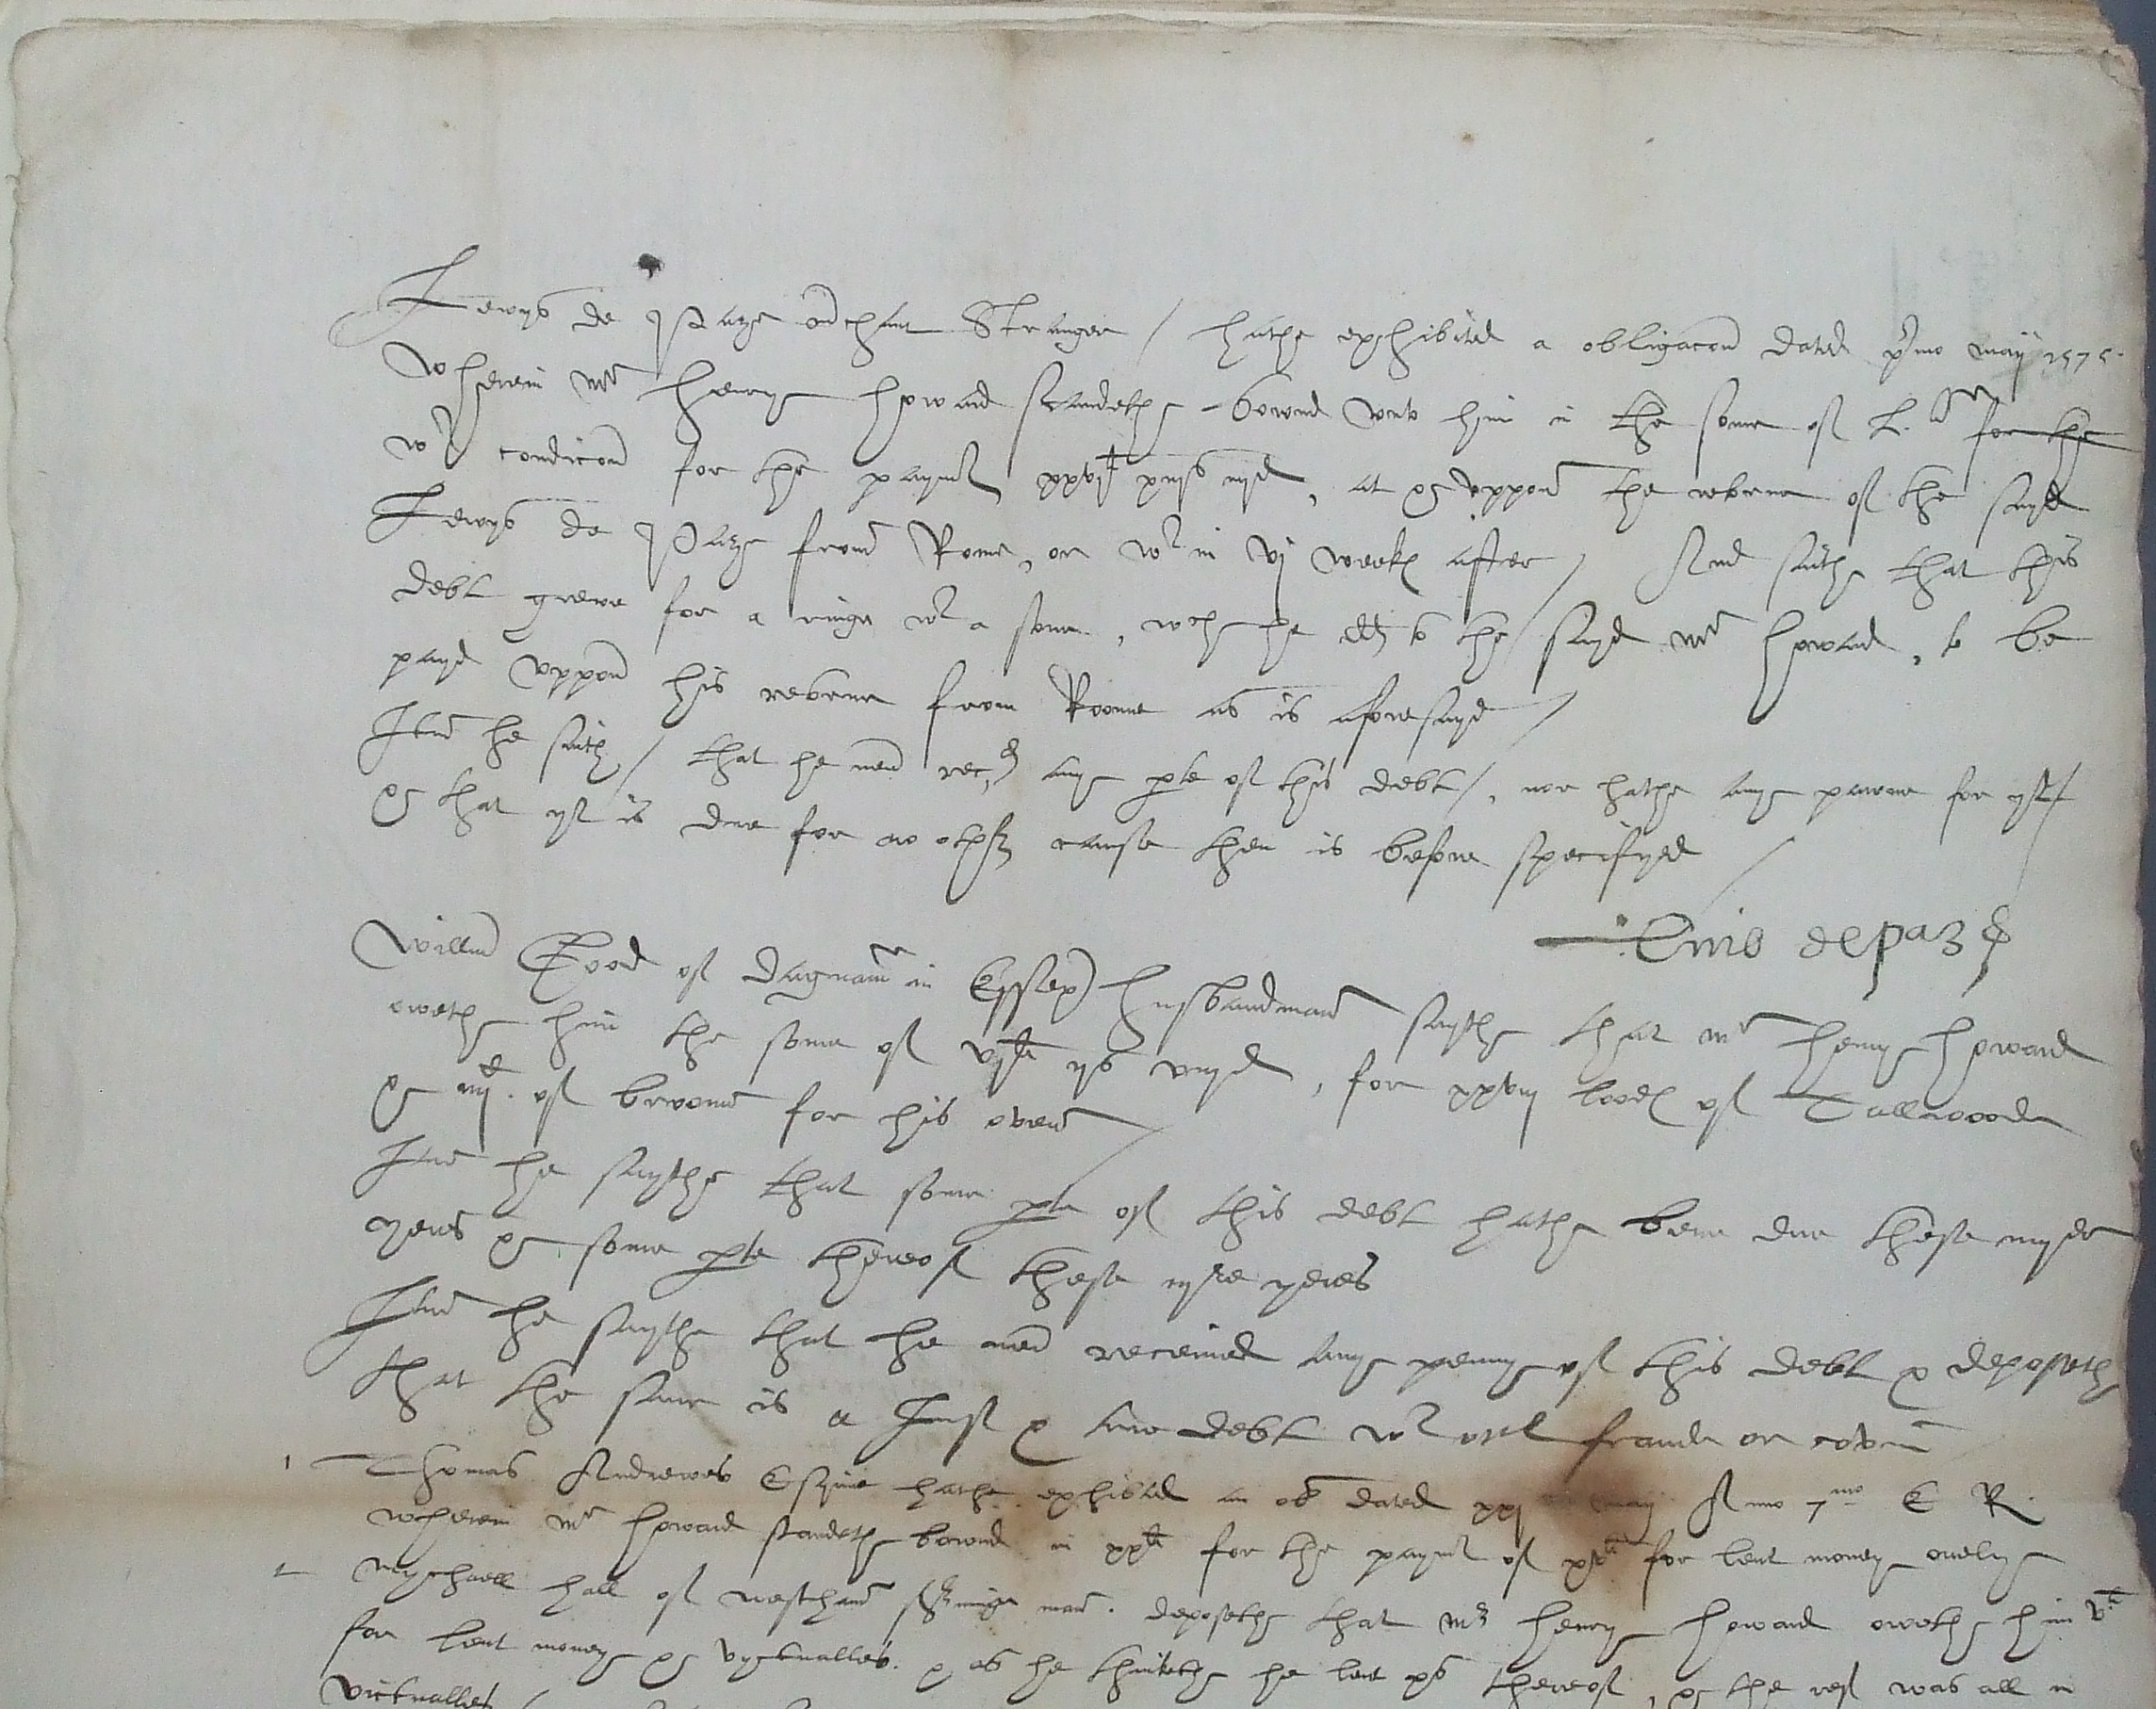 Lewys de Paze mchant Stranger / hathe exhibited a obligacon dated pimo maij 1575.
wherein mr henrye howard standethe bownd unto him in the some of L. li for the
wt condicon for the paymt xxvjli xiijs iiijd, at & uppon the retorne of the sayd
Lewys de Paze from Rome, or wt in vj weekes after / And saithe that this
debt grewe for a ringe wt a stone, wch he dd to the sayd mr howard, to be
payd uppon his retorne from Roome as is aforesayd /
Itm he saith / that he nevr recd anye pte of this debt /, nor hathe anye pawne for yt /
& that yt is due for no other cause then is before specifyed /
Luis de paz
Willm Good of dagnam in Essex husbandman saythe that mr henrye howard
owethe him the some of vjli ijs viijd, for xxviij loodes of Tallwoode
& iij of broome for his oven /
Itm he saythe that some pte of this debt hathe bene due these
yeres & some pte thereof these yeres
Itm he saythe that he nevr received anye penny of this debt & deposethe
that the same is a Just & trew debt wt out fraude or coven
1 Thomas Andrewes Esquire hathe exhibited an ob dated xxj may Anno 7mo E R.
wherein mr howard standethe bownd in xxli for the paymt of xvli for lent money onelye
2 Mychaell hall of westham man. deposethe that mr henry howard owethe him vli
for lent money & vyctualles. & as he thinkethe he lent xs thereof, & the rest was all in
victualles